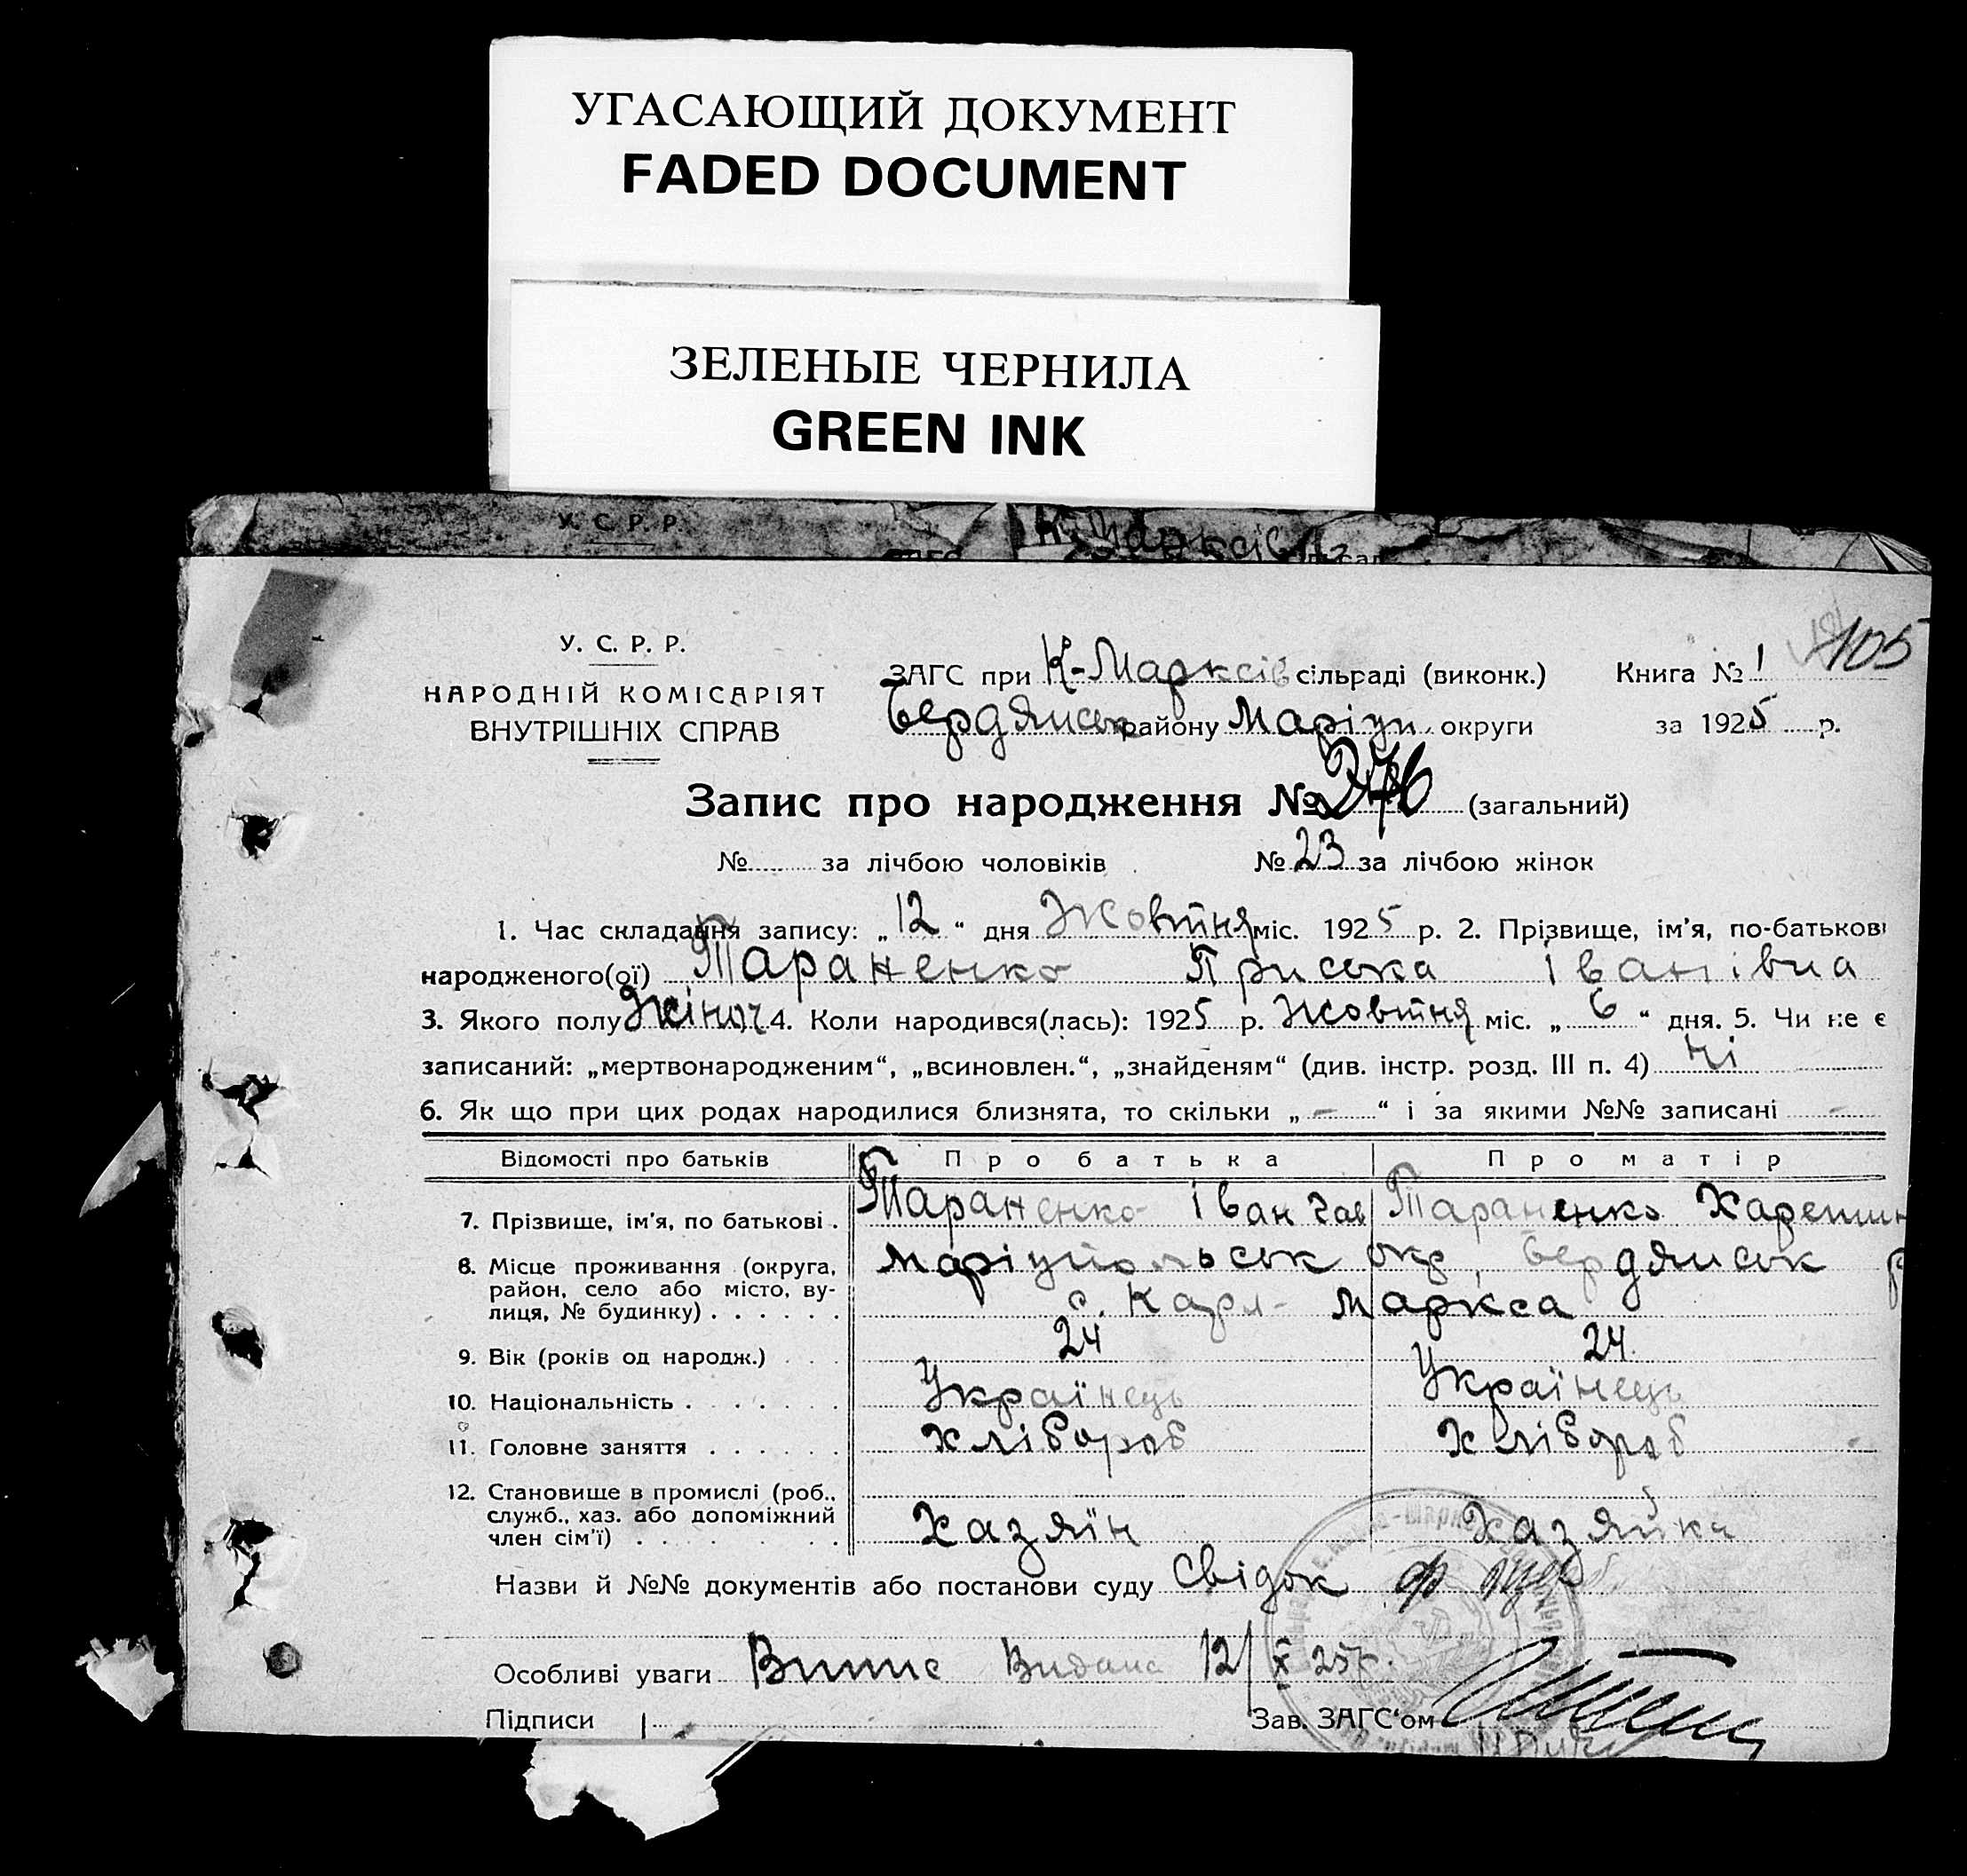 УГАСАЮЩИЙ ДОКУМЕНТ
FADED DOCUMENT
ЗЕЛЕНЫЕ ЧЕРНИЛА
GREEN INK
У. С. Р. Р.
У. С. Р. Р.
НАРОДНІЙ КОМІСАРІЯТ
ВНУТРІШНІХ СПРАВ
105
ЗАГС при К-Марксів сільраді (виконк.) Книга № 1
Бердянськ району Маріуп. округи за 1925 р.
Запис про народження № 276 (загальний)
№ за лічбою чоловіків № 23 за лічбою жінок
1. Час складання запису: „12“ дня Жовтня міс. 1925 р. 2. Прізвище, ім'я, по-батькові
народженого(ої) Тараненко Приська Іванівна
3. Якого полу жіноч 4. Коли народився(лась): 1925 р. Жовтня міс. „6“ дня. 5. Чи не є
записаний: „мертвонародженим“, „всиновлен.“, „знайденям“ (див. інстр. розд. III п. 4) ні
6. Як що при цих родах народилися близнята, то скільки „-“ і за якими №№ записані -
Відомості про батьків Про батька Про матір
7. Прізвище, ім'я, по батькові . Тараненко Іван Гав Тараненко Харетин
8. Місце проживання (округа, район, село або місто, вулиця, № будинку) . . . . . . Маріупольськ окр, Бердянськ р
с. Карл-Маркса
9. Вік (років од народж.) . . . 24 24
10. Національність . . . . . . Українець Українець
11. Головне заняття . . . . . . хлібороб хлібороб
12. Становище в промислі (роб., служб., хаз. або допоміжний член сім'ї) . . . . . . . Хазяїн Хазяйка
Назви й №№ документів або постанови суду Свідок
Особливі уваги Випис Видана 12/X 25р.
Підписи Зав. ЗАГС'ом